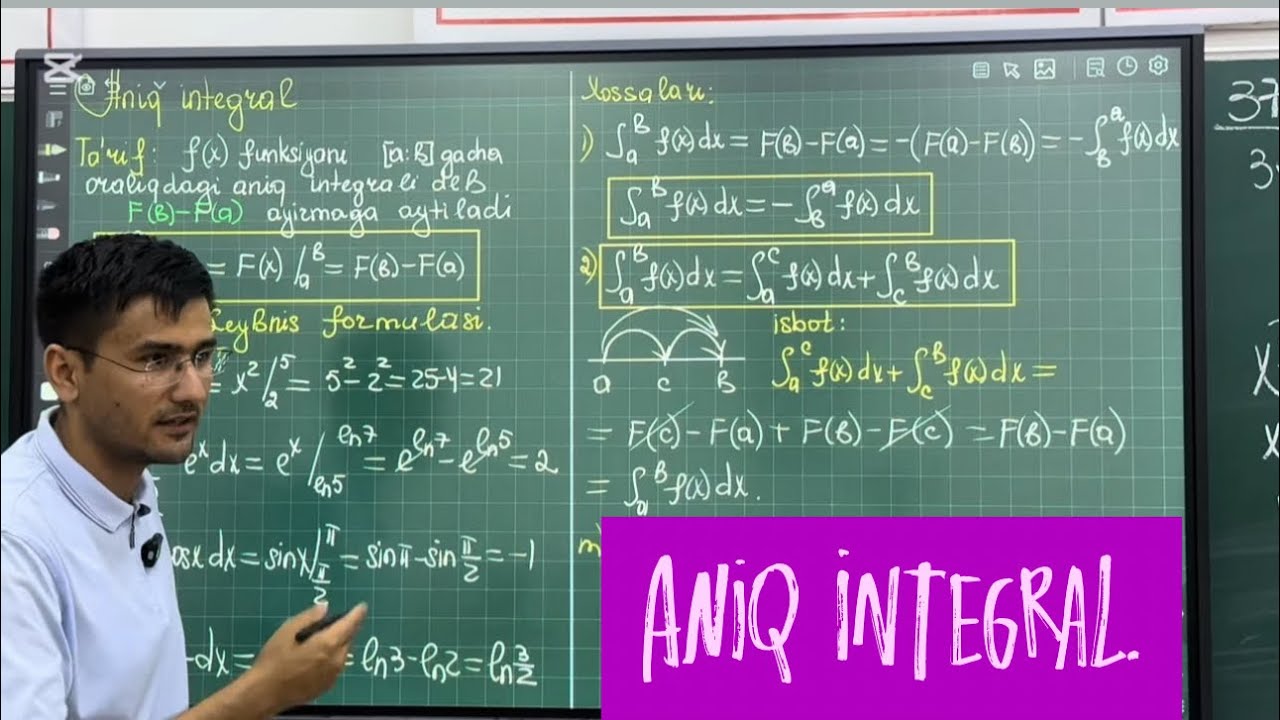 Aniq integral
Ta'rif: f(x) funksiyani [a;b] gacha
oraliqdagi aniq integrali deb
F(b)-F(a) ayirmaga aytiladi
= F(x) |ₐᵇ = F(b)-F(a)
Leybnis formulasi.
= x² |₂⁵ = 5²-2² = 25-4 = 21
eˣdx = eˣ | ln5 ln7 = e^ln7 - e^ln5 = 2
osx dx = sinx | π/2 π = sinπ - sin π/2 = -1
dx = = ln3 - ln2 = ln 3/2
Xossalari:
1) ∫ₐᵇ f(x)dx = F(b)-F(a) = -(F(a)-F(b)) = -∫_b^a f(x)dx
∫ₐᵇ f(x)dx = -∫_b^a f(x)dx
2) ∫ₐᵇ f(x)dx = ∫_a^c f(x)dx + ∫_c^b f(x)dx
a c b
isbot:
∫_a^c f(x)dx + ∫_c^b f(x)dx =
= F(c) - F(a) + F(b) - F(c) = F(b)-F(a)
= ∫ₐᵇ f(x)dx.
37
3
x
x
ANIQ INTEGRAL.